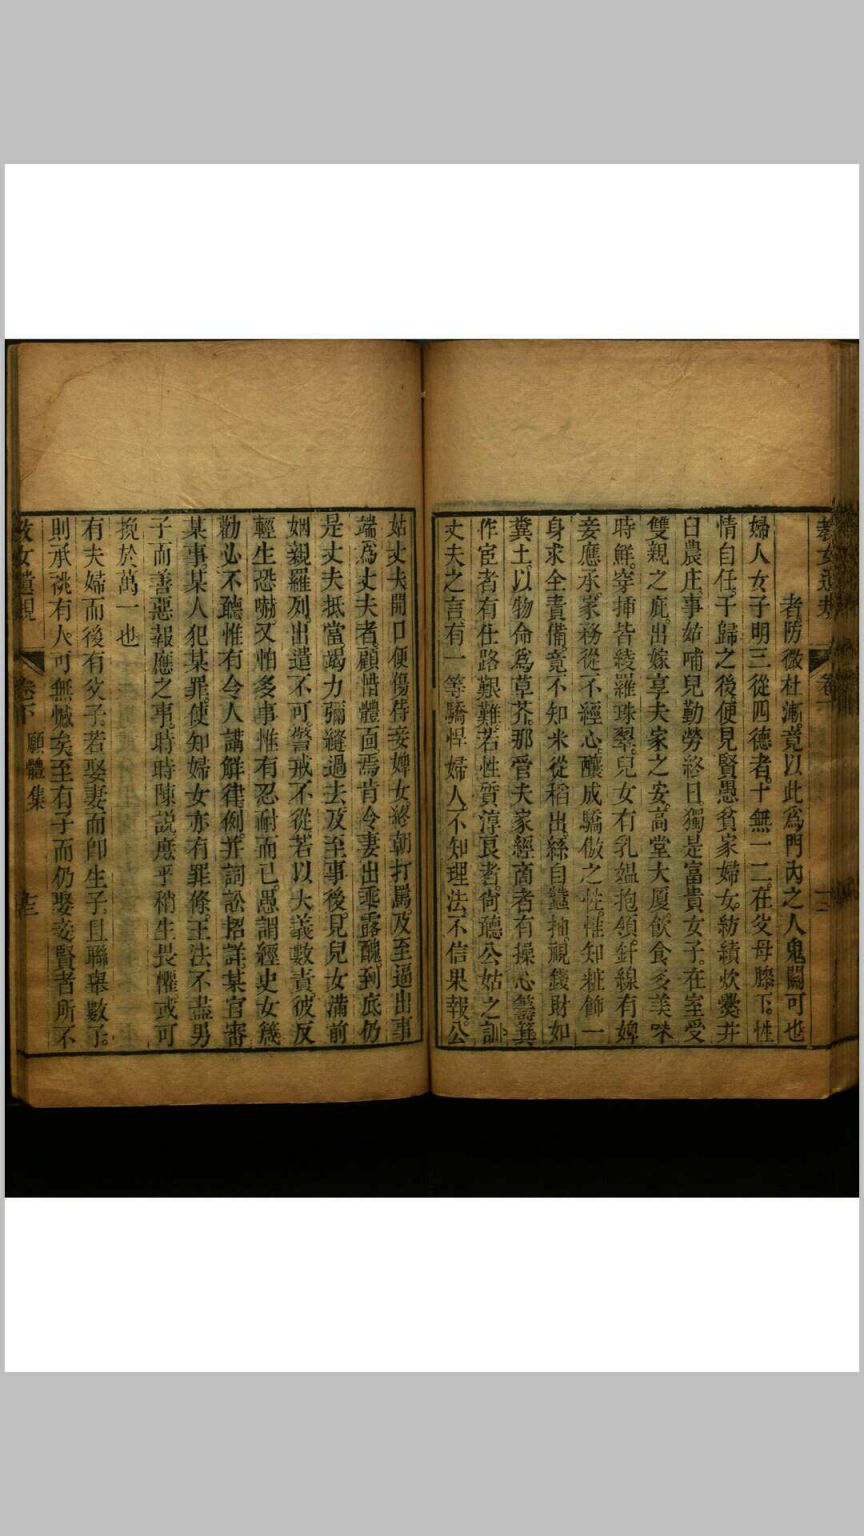 者防微杜漸竟以此為門內之人鬼關可也
婦人女子明三從四德者十無一二在父母膝下性
情自任于歸之後便見賢愚貧家婦女紡績炊爨井
臼農庄事姑哺兒勤勞終日獨是富貴女子在室受
雙親之庇出嫁享夫家之安高堂大厦飲食多美味
時鮮穿插皆綾羅珠翠兒女有乳媼抱領針線有婢
妾應承家務從不經心釀成驕傲之性惟知粧飾一
身求全責備竟不知米從稻出絲自蠶抽視錢財如
糞土以物命為草芥那管夫家經商者有操心籌算
作宦者有仕路艱難若性質淳良者尚聽公姑之訓
丈夫之言有一等驕悍婦人不知理法不信果報公
姑丈夫開口便傷侍妾婢女終朝打罵及至過出事
端為丈夫者顧惜體面焉肯令妻出乖露醜到底仍
是丈夫抵當竭力彌縫過去及至事後見兒女滿前
姻親羅列出遣不可警戒不從若以大義數責彼反
輕生恐嚇又怕多事惟有忍耐而已愚謂經史女幾
勸必不聽惟有令人講解律例并詞訟招詳某官審
某事某人犯某罪使知婦女亦有罪條王法不盡男
子而善惡報應之事時時陳說庶乎稍生畏懼或可
挽於萬一也
有夫婦而後有父子若娶妻而即生子且聯舉數子
則承祧有人可無憾矣至有子而仍娶妾賢者所不
教女遺規
卷下
願體集